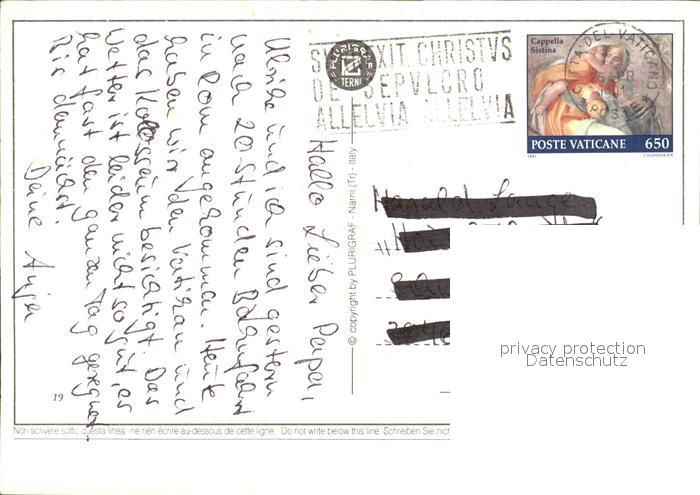 Hallo Lieber Papa,
Ulrike und ich sind gestern
nach 20-Stunden Bahnfahrt
in Rom angekommen. Heute
haben wir den Vatikan und
das Kolosseum besichtigt. Das
Wetter ist leider nicht so gut, es
hat fast den ganzen Tag geregnet.
Bis demnächst.
Deine Anja
19
© copyright by PLURIGRAF - Narni (Tr) - Italy
PLURIGRAF
TERNI
XIT CHRISTVS
DE SEPVLCRO
ALLELVIA ALLELVIA
Cappella
Sistina
POSTE VATICANE 650
1991 COURVOISIER
POSTE
privacy protection
Datenschutz
Non scrivere sotto questa linea - ne rien écrire au-dessous de cette ligne - Do not write below this line - Schreiben Sie nich